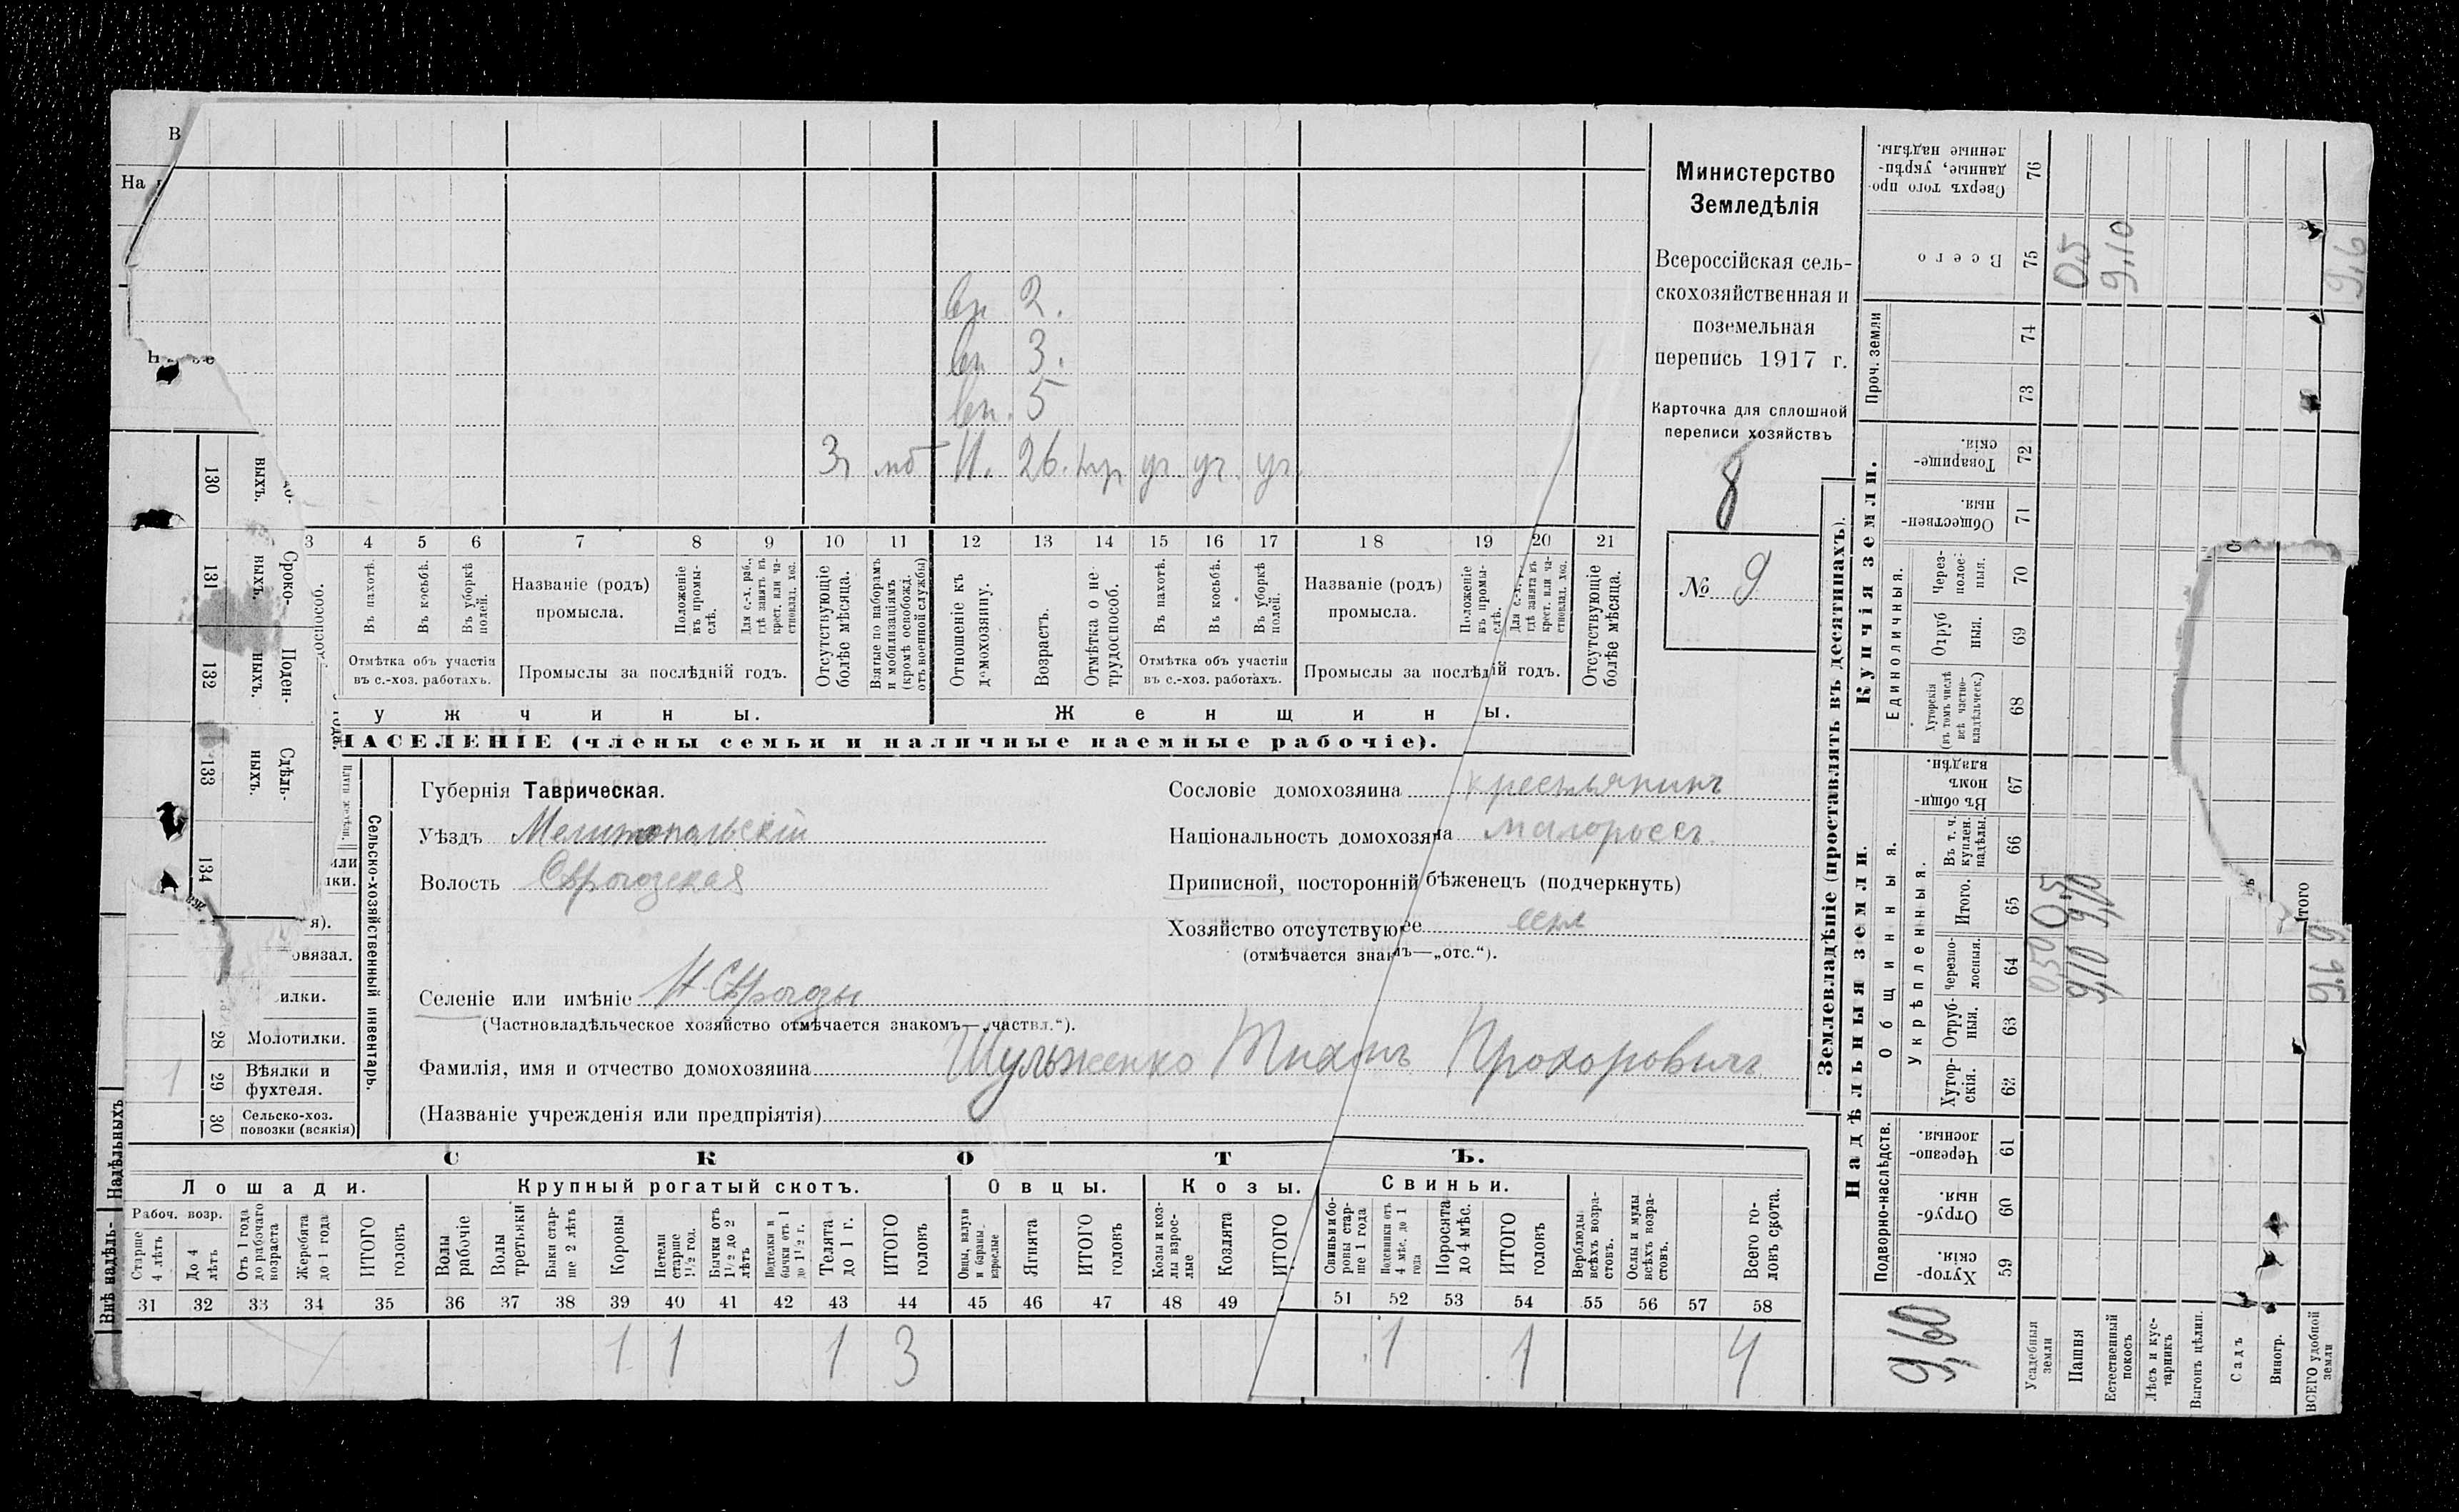 Министерство
Земледѣлія
Всероссійская сель-
скохозяйственная и
поземельная
перепись 1917 г.
Карточка для сплошной
переписи хозяйствъ
8
№ 9
вн 2.
вн 3.
вн. 5
мб 11. 26. нр уч уч. уч.
3 4 5 6 7 8 9 10 11 12 13 14 15 16 17 18 19 20 21
Въ пахотѣ.
Въ косьбѣ.
Въ уборкѣ полей.
Названіе (родъ)
промысла.
Положеніе
въ промы-
слѣ.
Для с.-х. раб.,
гдѣ занятъ въ
крест. или ча-
стновлад. хоз.
Отсутствующіе
болѣе мѣсяца.
Взятые по наборамъ
и мобилизаціямъ
(кромѣ освобожд.
отъ военной службы)
Отношеніе къ
домохозяину.
Возрастъ.
Отмѣтка о не
трудоспособ.
Въ пахотѣ.
Въ косьбѣ.
Въ уборкѣ
полей.
Названіе (родъ)
промысла.
Положеніе
въ промы-
слѣ.
Для с.-х.
гдѣ занята въ
крест. или ча-
стновлад. хоз.
Отсутствующіе
болѣе мѣсяца.
Отмѣтка объ участіи
въ с.-хоз. работахъ.
Промыслы за послѣдній годъ.
Отмѣтка объ участіи
въ с.-хоз. работахъ.
Промыслы за послѣдній годъ.
у ж ч и н ы.
Ж е н щ и н ы.
НАСЕЛЕНІЕ (члены семьи и наличные наемные рабочіе).
Губернія Таврическая.
Уѣздъ Мелитопольскій
Волость Сѣрогозская
Селеніе или имѣніе Н Сѣрогозы
(Частновладѣльческое хозяйство отмѣчается знакомъ—„частвл.“).
Фамилія, имя и отчество домохозяина Шульженко Тихонъ Прохоровичъ
(Названіе учрежденія или предпріятія)
Сословіе домохозяина крестьянинъ
Національность домохозяина малороссъ.
Приписной, посторонній бѣженецъ (подчеркнуть)
Хозяйство отсутствующее
(отмѣчается знакомъ—„отс.“).
130 выхъ.
131 ныхъ. Сроко-
132 ныхъ. Поден-
133 ныхъ. Сдѣль-
134
Сельско-хозяйственный инвентарь.
28 Молотилки.
1 29 Вѣялки и
фухтеля.
30 Сельско-хоз.
повозки (всякія)
Надѣльныхъ
Внѣ надѣль-
СКОТЪ.
Лошади. Крупный рогатый скотъ. Овцы. Козы. Свиньи.
Рабоч. возр.
Старше
4 лѣтъ
До 4
лѣтъ
Отъ 1 года
до рабочаго
возраста
Жеребята
до 1 года
ИТОГО
головъ
Волы
рабочіе
Волы
третьяки
Быки стар-
ше 2 лѣтъ
Коровы
Нетели
старше
1½ год.
Бычки отъ
1½ до 2
лѣтъ
Подтелки и
бычки отъ 1
до 1½ г.
Телята
до 1 г.
ИТОГО
головъ
Овцы, валухи
и бараны
взрослые
Ягнята
ИТОГО
головъ
Козы и коз-
лы взрос-
лые
Козлята
ИТОГО
Свиньи и бо-
ровы стар-
ше 1 года
Подсвинки отъ
4 мѣс. до 1
года
Поросята
до 4 мѣс.
ИТОГО
головъ
Верблюды
всѣхъ возра-
стовъ.
Ослы и мулы
всѣхъ возра-
стовъ.
Всего го-
ловъ скота.
31 32 33 34 35 36 37 38 39 40 41 42 43 44 45 46 47 48 49 51 52 53 54 55 56 57 58
1 1 1 3 1 1 4
Землевладѣніе (проставлять въ десятинахъ).
Надѣльныя земли.
Купчія земли.
Проч. земли
Подворно-наслѣдств.
Общинныя.
Укрѣпленныя.
Единоличныя.
Хутор-
скія. 59
Отруб-
ныя. 60
Черезпо-
лосныя. 61
Хутор-
скія. 62
Отруб-
ныя. 63
Черезпо-
лосныя. 64
Итого. 65
Въ т. ч.
куплен.
надѣлы. 66
Въ общин-
номъ
владѣн. 67
Хуторскія
(въ томъ числѣ
всѣ частно-
владѣльческ.) 68
Отруб
ныя. 69
Через-
полос-
ныя. 70
Обществен-
ныя. 71
Товарище-
скія. 72
73
74
Всего 75
Сверхъ того про-
данные, укрѣп-
ленные надѣлы. 76
9,60
Усадебныя
земли 050 0,5 0,5
Пашня 9,10 9,10 9,10
Естественный
покосъ
Лѣсъ и кус-
тарникъ
Выгонъ цѣлин.
Садъ
Виногр.
ВСЕГО удобной
земли 9,6 9,6